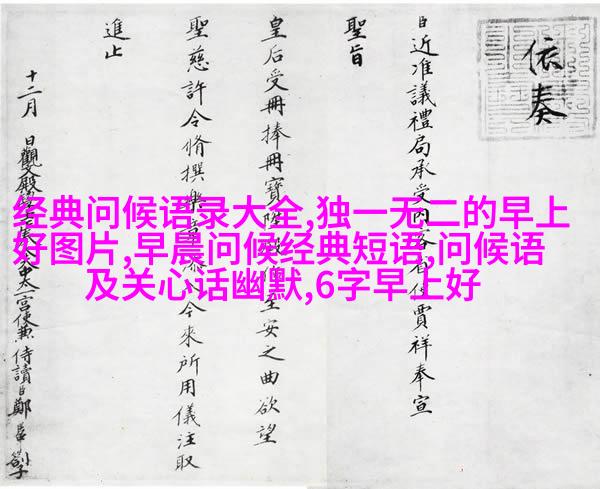 经典问候语录大全,独一无二的早上
好图片,早晨问候经典短语,问候语
及关心话幽默,6字早上好
依奏
近准議禮局承受內客省 賈祥奉宣
聖旨
皇后受冊捧冊寶陞 至安之曲欲望
聖慈許令脩撰樂 今來所用儀注取
進止
十二月 日觀文殿 太一宮使兼侍讀臣鄭